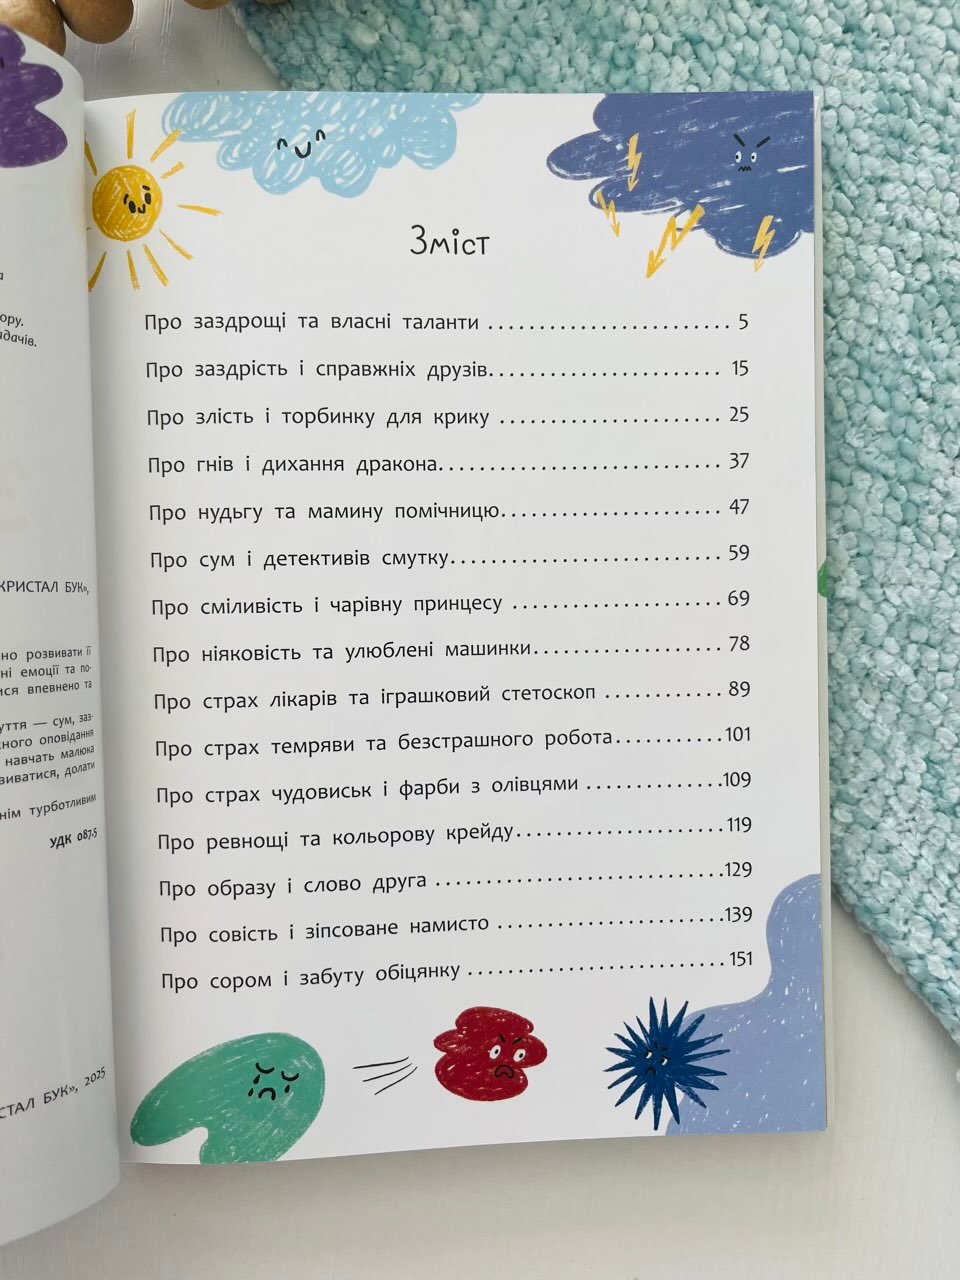 а
ору.
дачів.
КРИСТАЛ БУК»,
но розвивати її
ні емоції та по-
ися впевнено та
уття — сум, заз-
ного оповідання
навчать малюка
зиватися, долати
нім турботливим
УДК 087.5
СТАЛ БУК», 2025
Зміст
Про заздрощі та власні таланти ........................ 5
Про заздрість і справжніх друзів....................... 15
Про злість і торбинку для крику ...................... 25
Про гнів і дихання дракона............................ 37
Про нудьгу та мамину помічницю...................... 47
Про сум і детективів смутку........................... 59
Про сміливість і чарівну принцесу ..................... 69
Про ніяковість та улюблені машинки................... 78
Про страх лікарів та іграшковий стетоскоп ............ 89
Про страх темряви та безстрашного робота........... 101
Про страх чудовиськ і фарби з олівцями ..............109
Про ревнощі та кольорову крейду.....................119
Про образу і слово друга .............................129
Про совість і зіпсоване намисто .......................139
Про сором і забуту обіцянку ......................... 151